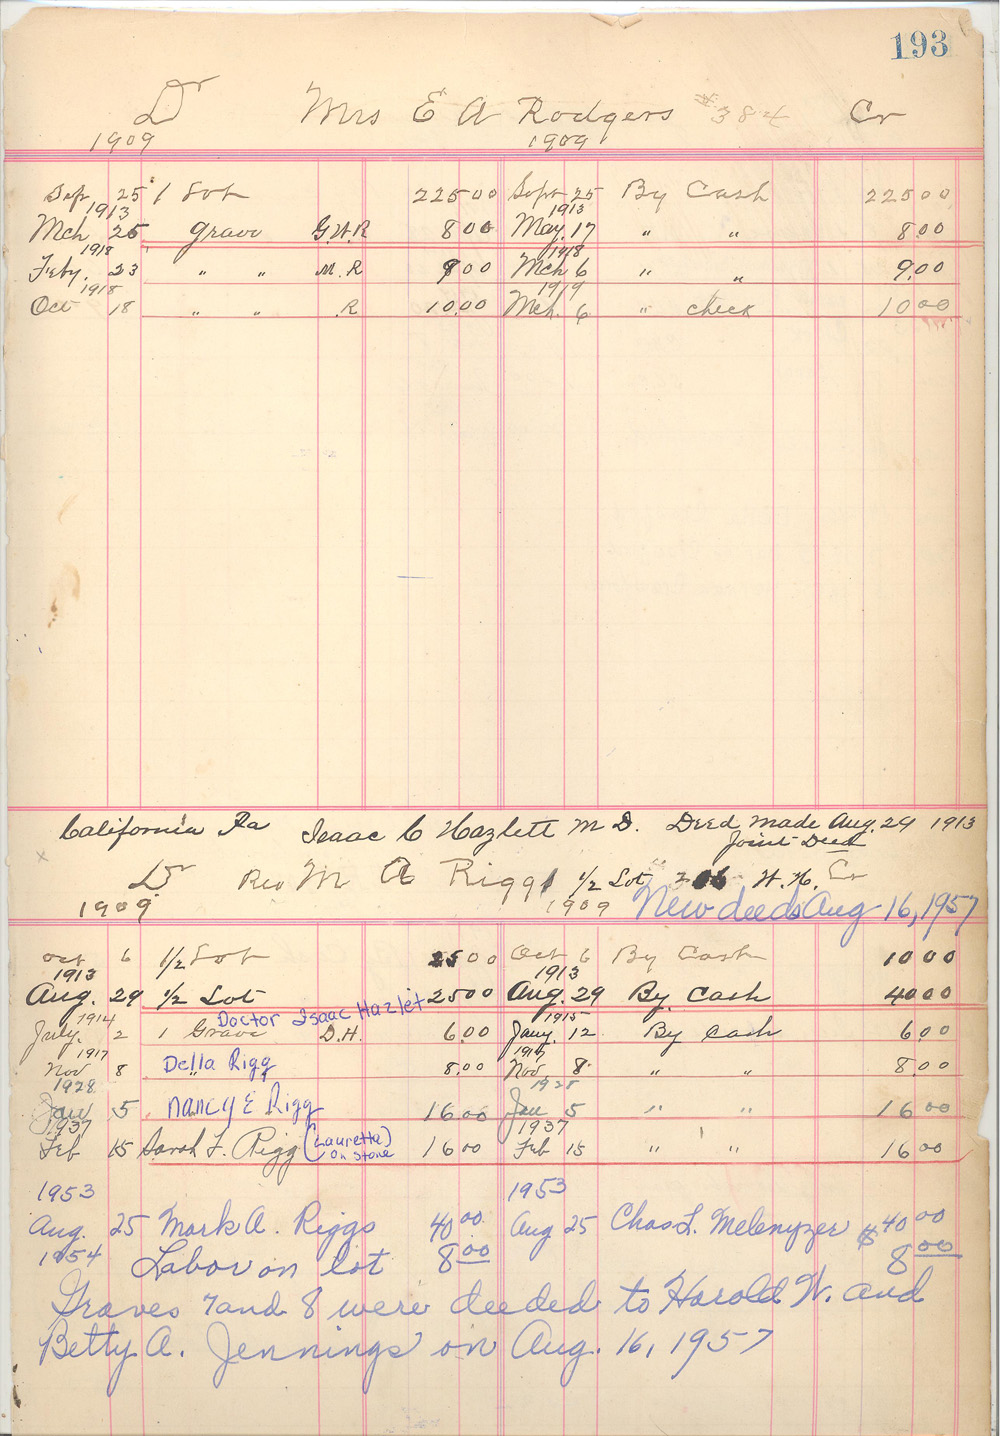 193
Dr Mrs E A Rodgers #384 Cr
1909 1909
Sep 25 1 Lot 225 00 Sept 25 By Cash 225 00
1913 1913
Mch 25 Grave G.W.R 8 00 May. 17 " " 8.00
1918 1918
Feby. 23 " " M.R 9 00 Mch 6 " " 9.00
1918 1919
Oct 18 " " R 10.00 Mch. 6 " check 10 00
California Pa Isaac C Hazlett M D. Deed Made Aug. 29 1913
Joint Deed
Dr Rev M A Rigg 1/2 Lot W. H. Cr
1909 1909 New deeds Aug 16, 1957
Oct 6 1/2 Lot 25 00 Oct 6 By Cash 10 00
1913 1913
Aug. 29 1/2 Lot 25 00 Aug. 29 By Cash 40 00
Doctor Isaac Hazlet
1914 1915
July. 2 1 Grave D.H. 6.00 Jany. 12 By Cash 6.00
1917 1917
Nov 8 Della Rigg 8.00 Nov. 8 " " 8.00
1928 1928
Jan 5 Nancy E Rigg 16 00 Jan 5 " " 16 00
1937 1937
Feb 15 Sarah L. Rigg (Lauretta on stone) 16 00 Feb 15 " " 16 00
1953 1953
Aug. 25 Mark A. Riggs 40 00 Aug 25 Chas L. Melenyzer $40 00
1954 Labor on lot 8 00 8 00
Graves 7 and 8 were deeded to Harold W. and
Betty A. Jennings on Aug. 16, 1957